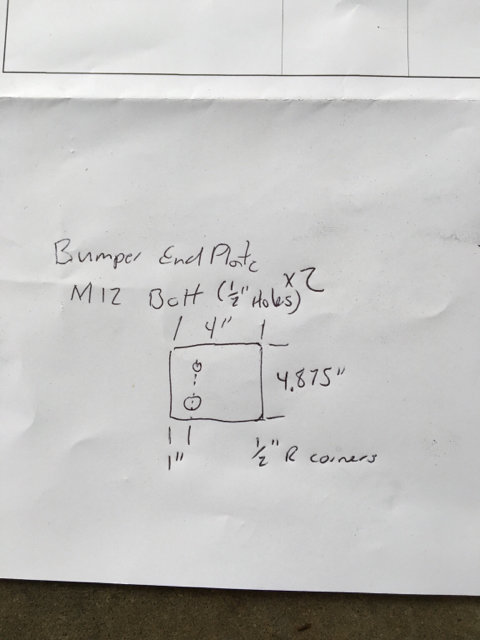 Bumper End Plate
x2
M12 Bolt (1/2" Holes)
4"
4.875"
1"
1/2" R corners